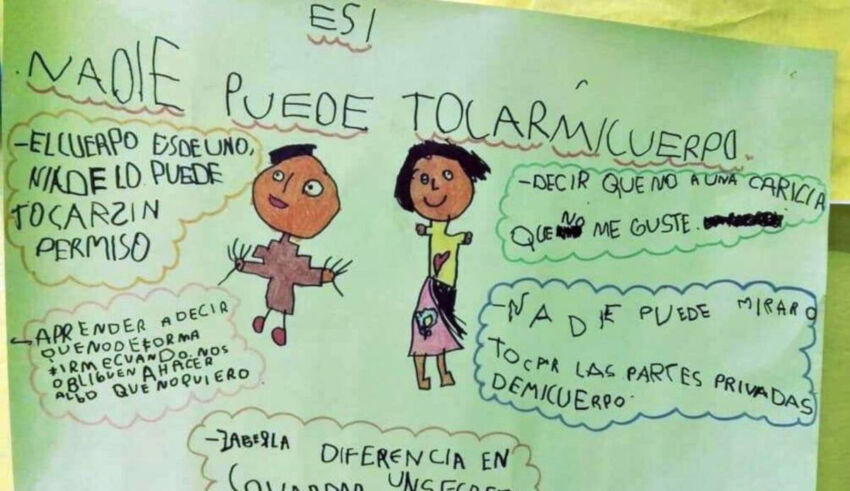 ESI
NADIE PUEDE TOCARMICUERPO.
-EL CUERPO ES DE UNO,
NINDE LO PUEDE
TOCARZIN
PERMISO
-DECIR QUE NO A UNA CARICIA
QUE NO ME GUSTE.
-APRENDER A DECIR
QUENODEFORMA
FIRMECUANDO NOS
OBLIGUEN AHACER
ALGO QUENOQUIERO
-NADIE PUEDE MIRARO
TOCAR LAS PARTES PRIVADAS
DEMICUERPO.
-ZABERLA DIFERENCIA EN
GUARDAR UNSECRET